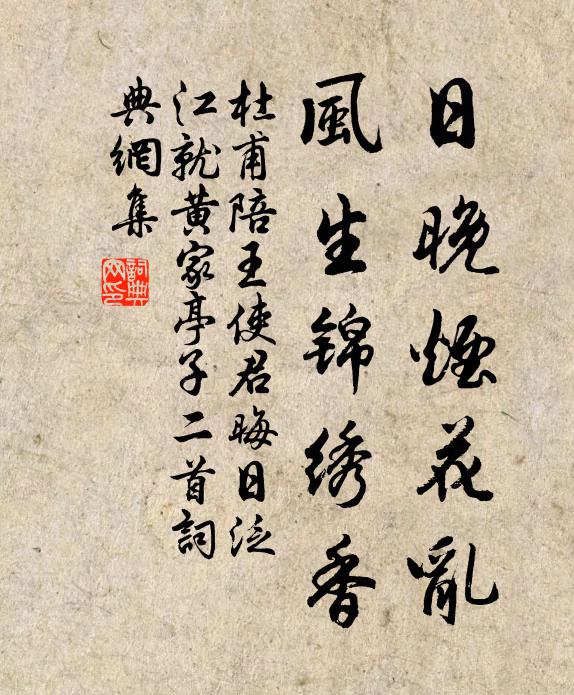 日晚煙花亂
風生錦绣香
杜甫陪王使君晦日泛
江就黃家亭子二首詞
典網集
詞典
网印